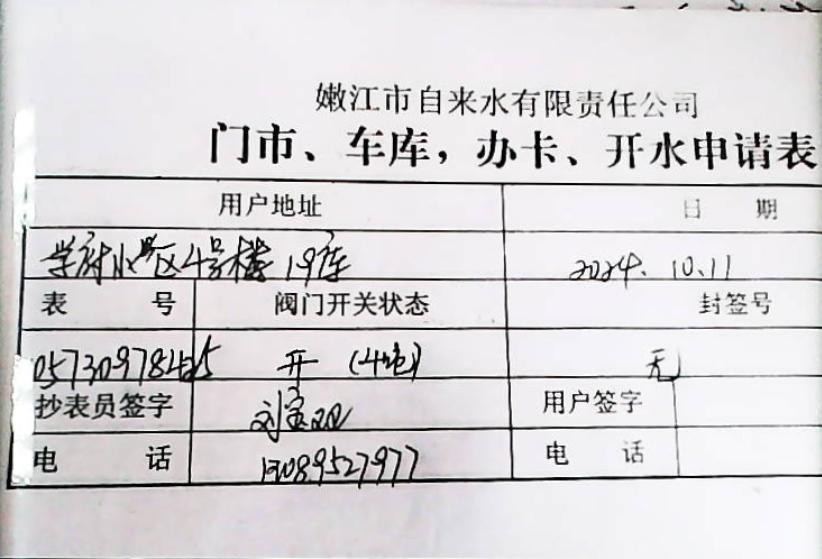 嫩江市自来水有限责任公司
门市、车库，办卡、开水申请表
用户地址 日 期
学府小区4号楼19库 2024.10.11
表 号 阀门开关状态 封签号
05730978425 开 (4吨) 无
抄表员签字 刘宝 用户签字
电 话 13089527977 电 话